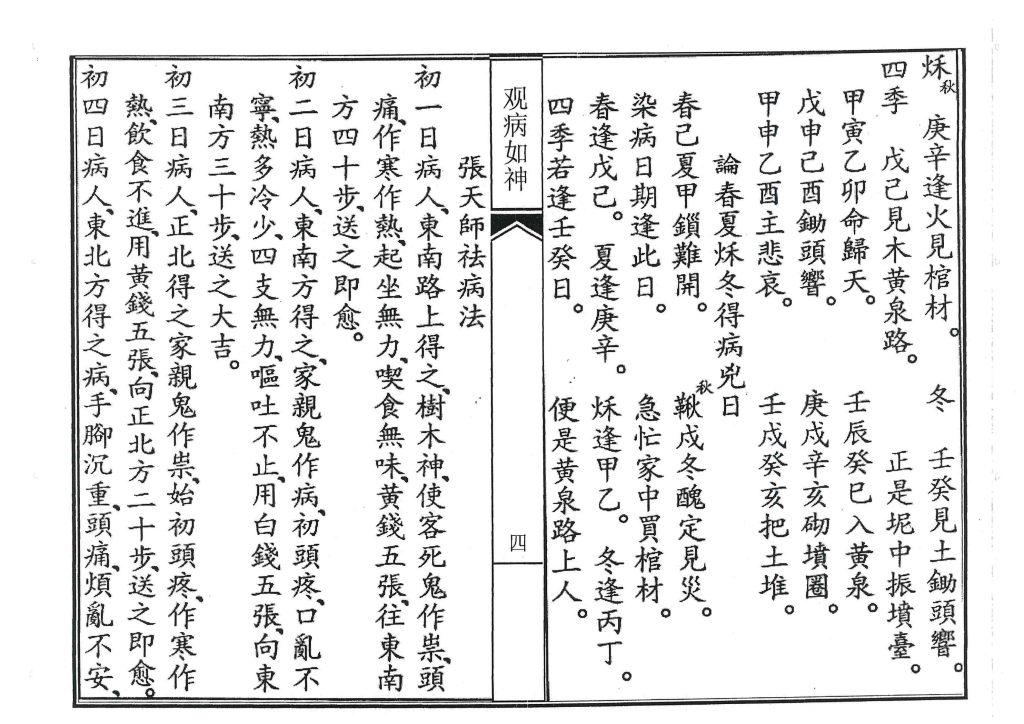 秌秋　庚辛逢火見棺材。　冬　壬癸見土鋤頭響。
四季　戊己見木黃泉路。　正是坭中振墳臺。
甲寅乙卯命歸天。　壬辰癸巳入黃泉。
戊申己酉鋤頭響。　庚戍辛亥砌墳圈。
甲申乙酉主悲哀。　壬戍癸亥把土堆。
論春夏秌冬得病兇日
春己夏甲鎖難開。　鞦秋戍冬醜定見災。
染病日期逢此日。　急忙家中買棺材。
春逢戊己。　夏逢庚辛。　秌逢甲乙。　冬逢丙丁。
四季若逢壬癸日。　便是黃泉路上人。
观病如神
四
張天師祛病法
初一日病人、東南路上得之、樹木神、使客死鬼作祟、頭
痛、作寒作熱、起坐無力、喫食無味、黃錢五張、往東南
方四十步、送之即愈。
初二日病人、東南方得之、家親鬼作病、初頭疼、口亂不
寧、熱多冷少、四支無力、嘔吐不止、用白錢五張、向東
南方三十步、送之大吉。
初三日病人、正北得之家親鬼作祟、始初頭疼、作寒作
熱、飲食不進、用黃錢五張、向正北方二十步、送之即愈。
初四日病人、東北方得之病、手腳沉重、頭痛、煩亂不安、